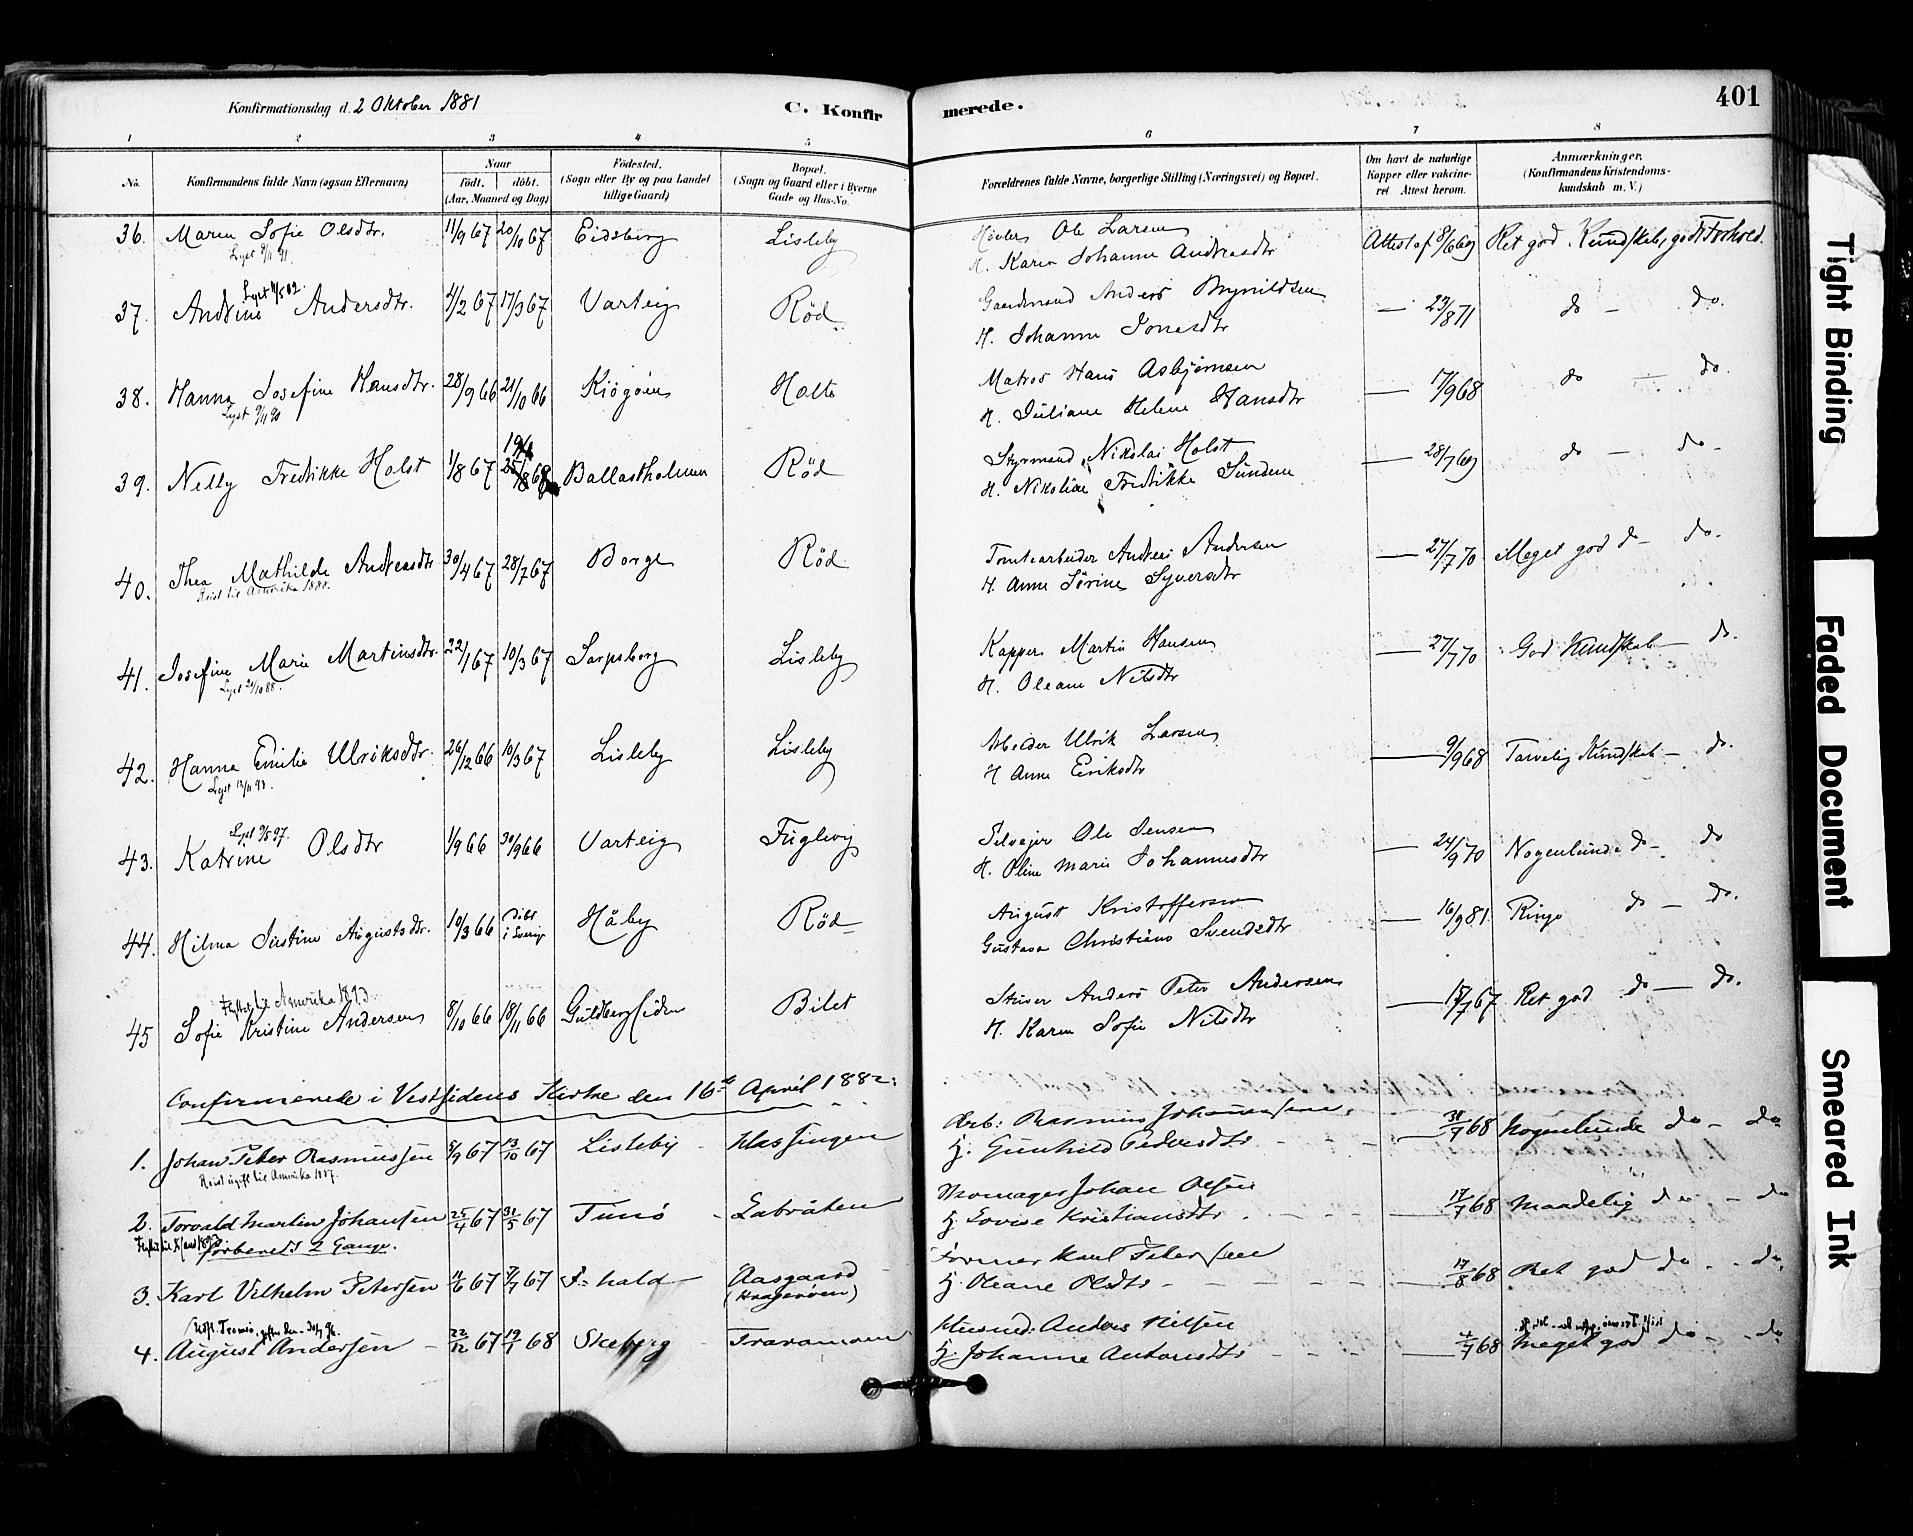 Konfirmationsdag d. 2 Oktober 1881 C. Konfirmerede. 401
1 2 3 4 5 6 7 8
No. Konfirmandens fulde Navn (ogsaa Efternavn) Naar født. døbt. (Aar, Maaned og Dag) Fødested. (Sogn eller By og paa Landet tillige Gaard) Bopæl. (Sogn og Gaard eller i Byerne Gade og Hus-No. Forældrenes fulde Navne, borgerlige Stilling (Næringsvei) og Bopæl. Om havt de naturlige Kopper eller vakcineret Attest herom. Anmærkninger. (Konfirmandens Kristendomskundskab m. V.)
36. Maren Sofie Olsdtr. 11/9 67 20/10 67 Eidsberg Lisleby Høvler Ole Larsen Attest af 8/6 69 Ret god Kundskab, godt Forhold.
H. Karen Johanne Andreasdtr
Lyst 11/5 02.
37. Andrine Andersdtr. 4/2 67 17/3 67 Varteig Rød Gaardmand Anders Brynildsen — 23/8 71 do — do.
H. Johanne Jonasdtr
38. Hanna Josefine Hansdtr. 28/9 66 21/10 66 Kiøgøien Holte Matros Hans Asbjørnsen — 17/9 68 do — do.
H. Juliane Helene Hansdtr
39. Nelly Fredrikke Holst 1/8 67 Ballastholmen Rød Styrmand Nikolai Holst — 28/7 69 do — do —
H. Nikoline Fredrikke Sundene
40. Thea Mathilde Andreasdtr 30/4 67 28/7 67 Borge Rød Tomtearbeider Andreas Andersen — 27/7 70 Meget god do — do.
Reist til Amerika 1888. H. Anne Sørine Syversdtr
41. Josefine Marie Martinsdtr. 22/1 67 10/3 67 Sarpsborg Lisleby Kapper Martin Hansen — 27/7 70 God Kundskab — do.
H. Oleane Nilsdtr
42. Hanna Emilie Ulriksdtr. 26/12 66 10/3 67 Lisleby Lisleby Ulrik Larsen — 9/9 68 Tarvelig Kundskab — do.
H Anne Eriksdtr
43. Katrine Olsdtr 1/9 66 30/9 66 Varteig Fuglevig Selveier Ole Jensen — 24/9 70 Nogenlunde do — do
H. Oline Marie Johannesdtr
44. Hilma Justine Augustsdtr. 10/3 66 døbt i Sverige Håby Rød August Kristoffersen — 16/9 81. Ringe do — do.
Gustava Christiane Svendsdtr
Flyttet til Amerika
45 Sofie Kristine Andersen 8/10 66 18/11 66 Bilet Stuver Anders Peter Andersen — 67 Ret god do — do.
H. Karen Sofie Nilsdtr
Confirmerede i Vestsidens Kirke den 16de April 1882:
1. Johan Peter Rasmussen 8/9 67 13/10 67 Lisleby Klassingen Arb: Rasmus Johannessen — 31/7 68 Nogenlunde do — do.
Reist ugift til Amerika 1887. H. Gunhild Pedersdtr
2. Torvald Martin Johansen 25/4 67 31/5 67 Tunø Labråten Johan Olsen — 17/7 68 Maadelig do — do
forberedt 2 Gange. H. Lovise Kristiansdtr
3. Karl Vilhelm Petersen 11/6 67 7/7 67 F: hald Aasgaard Former Karl Petersen — 17/8 68 Ret god do — do.
(Kragerøen) H. Oleane Olsdtr
4. August Andersen — 22/12 67 19/1 68 Skeberg Traramoen Husmd: Anders Nilsen — 4/7 68 Meget god do — do
H. Johanne Antonsdtr
Tight Binding
Faded Document
Smeared Ink